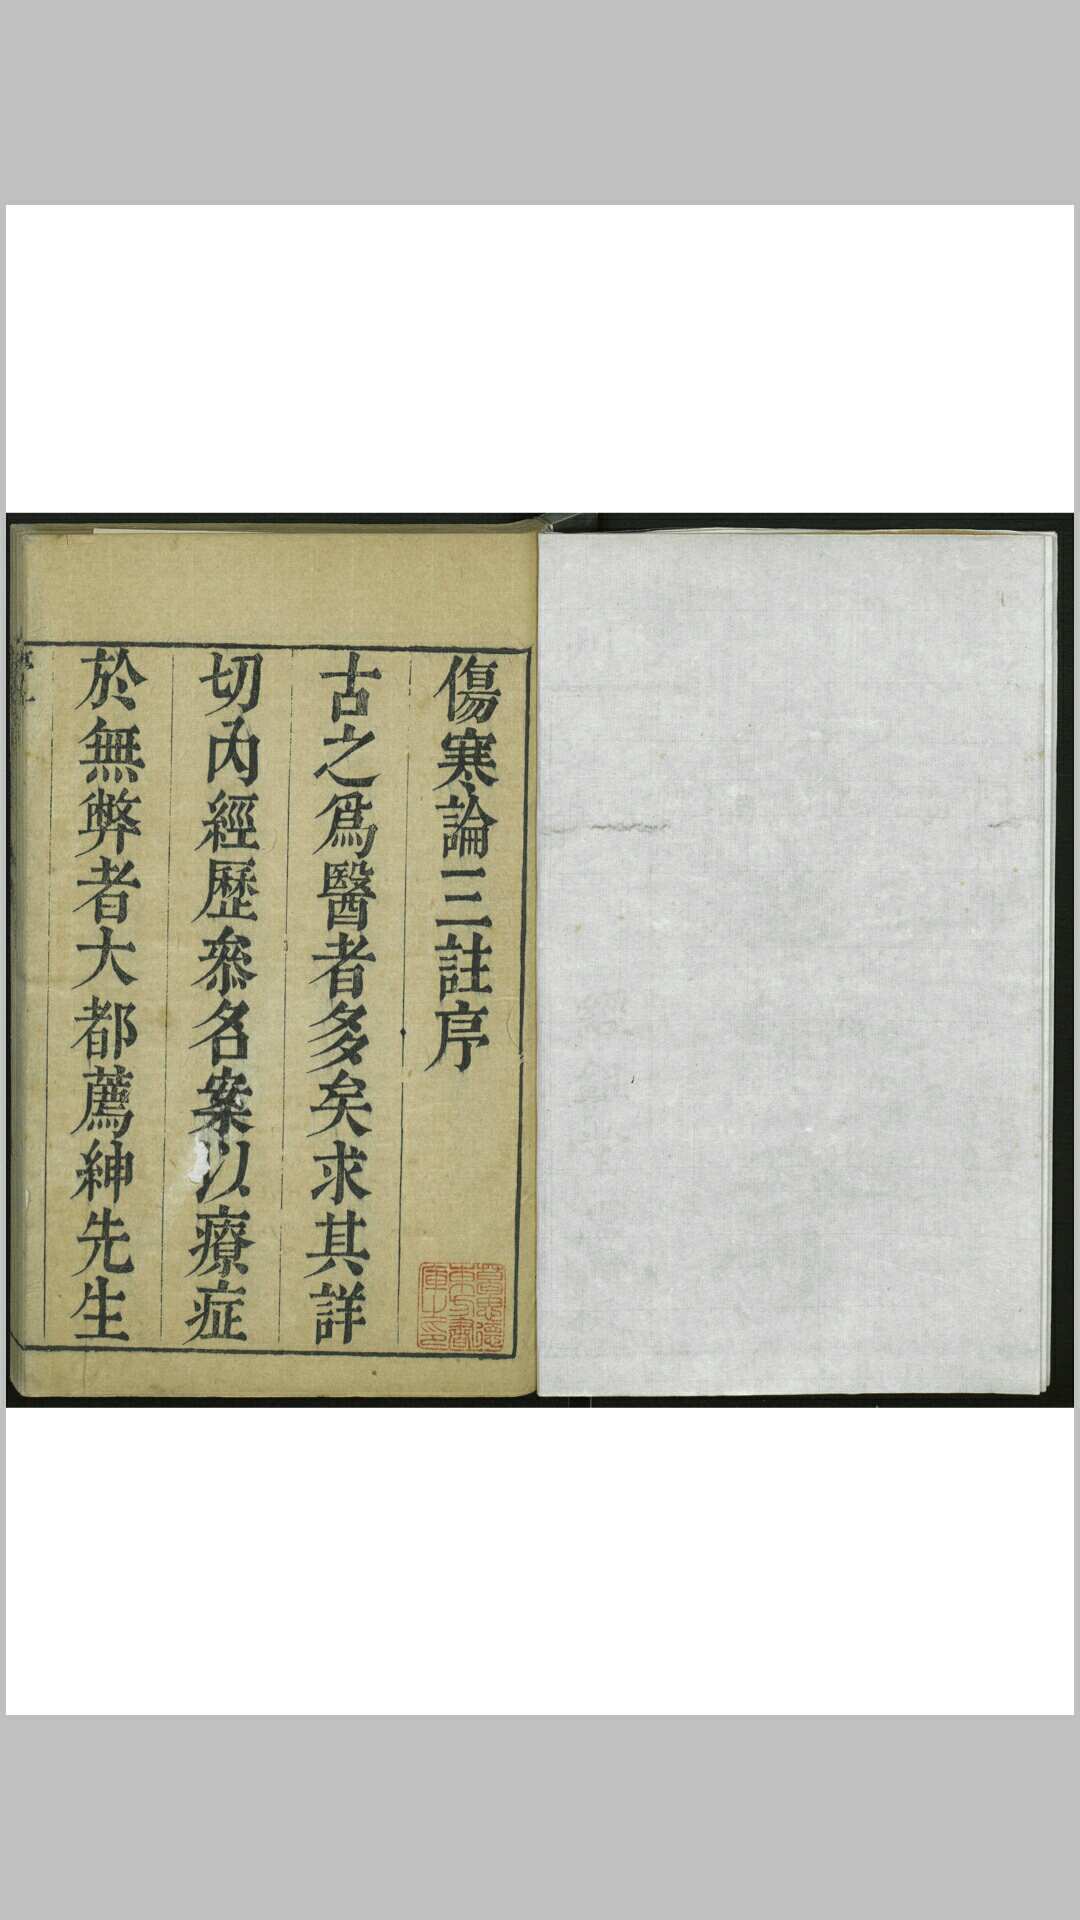 傷寒論三註序
古之爲醫者多矣求其詳
切內經歷叅名案以療症
於無弊者大都薦紳先生